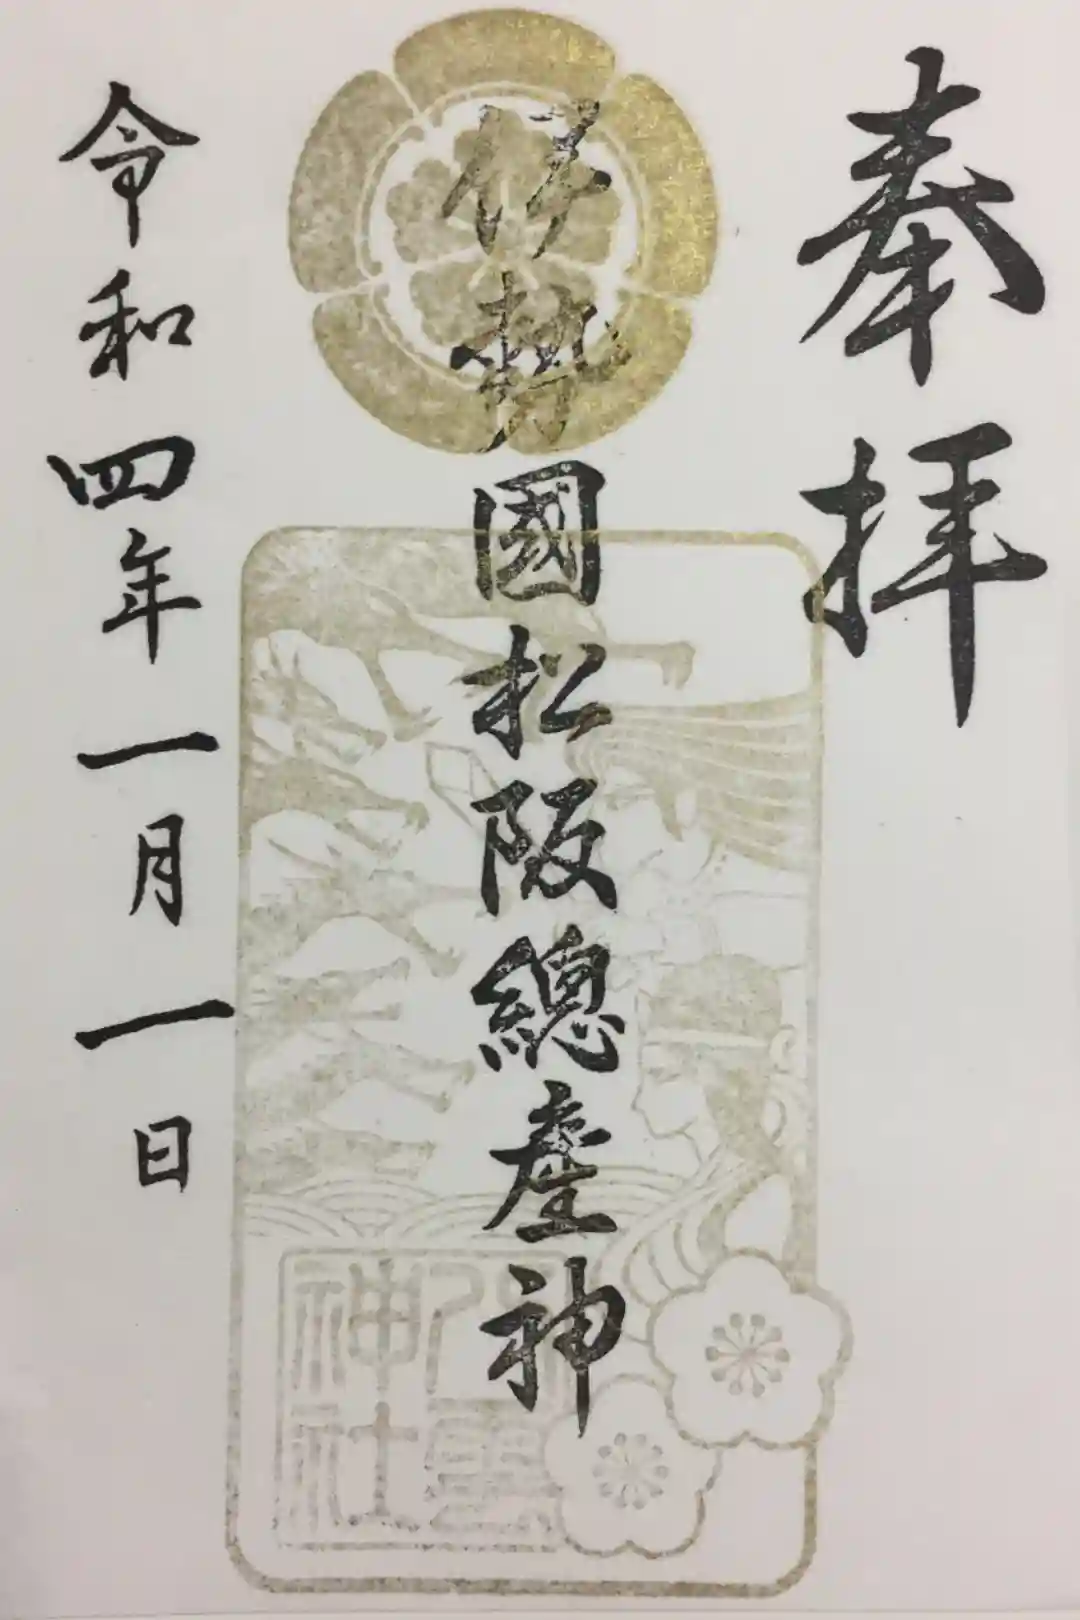 奉拝
伊勢國松阪總産神
八雲
神社
令和四年一月一日